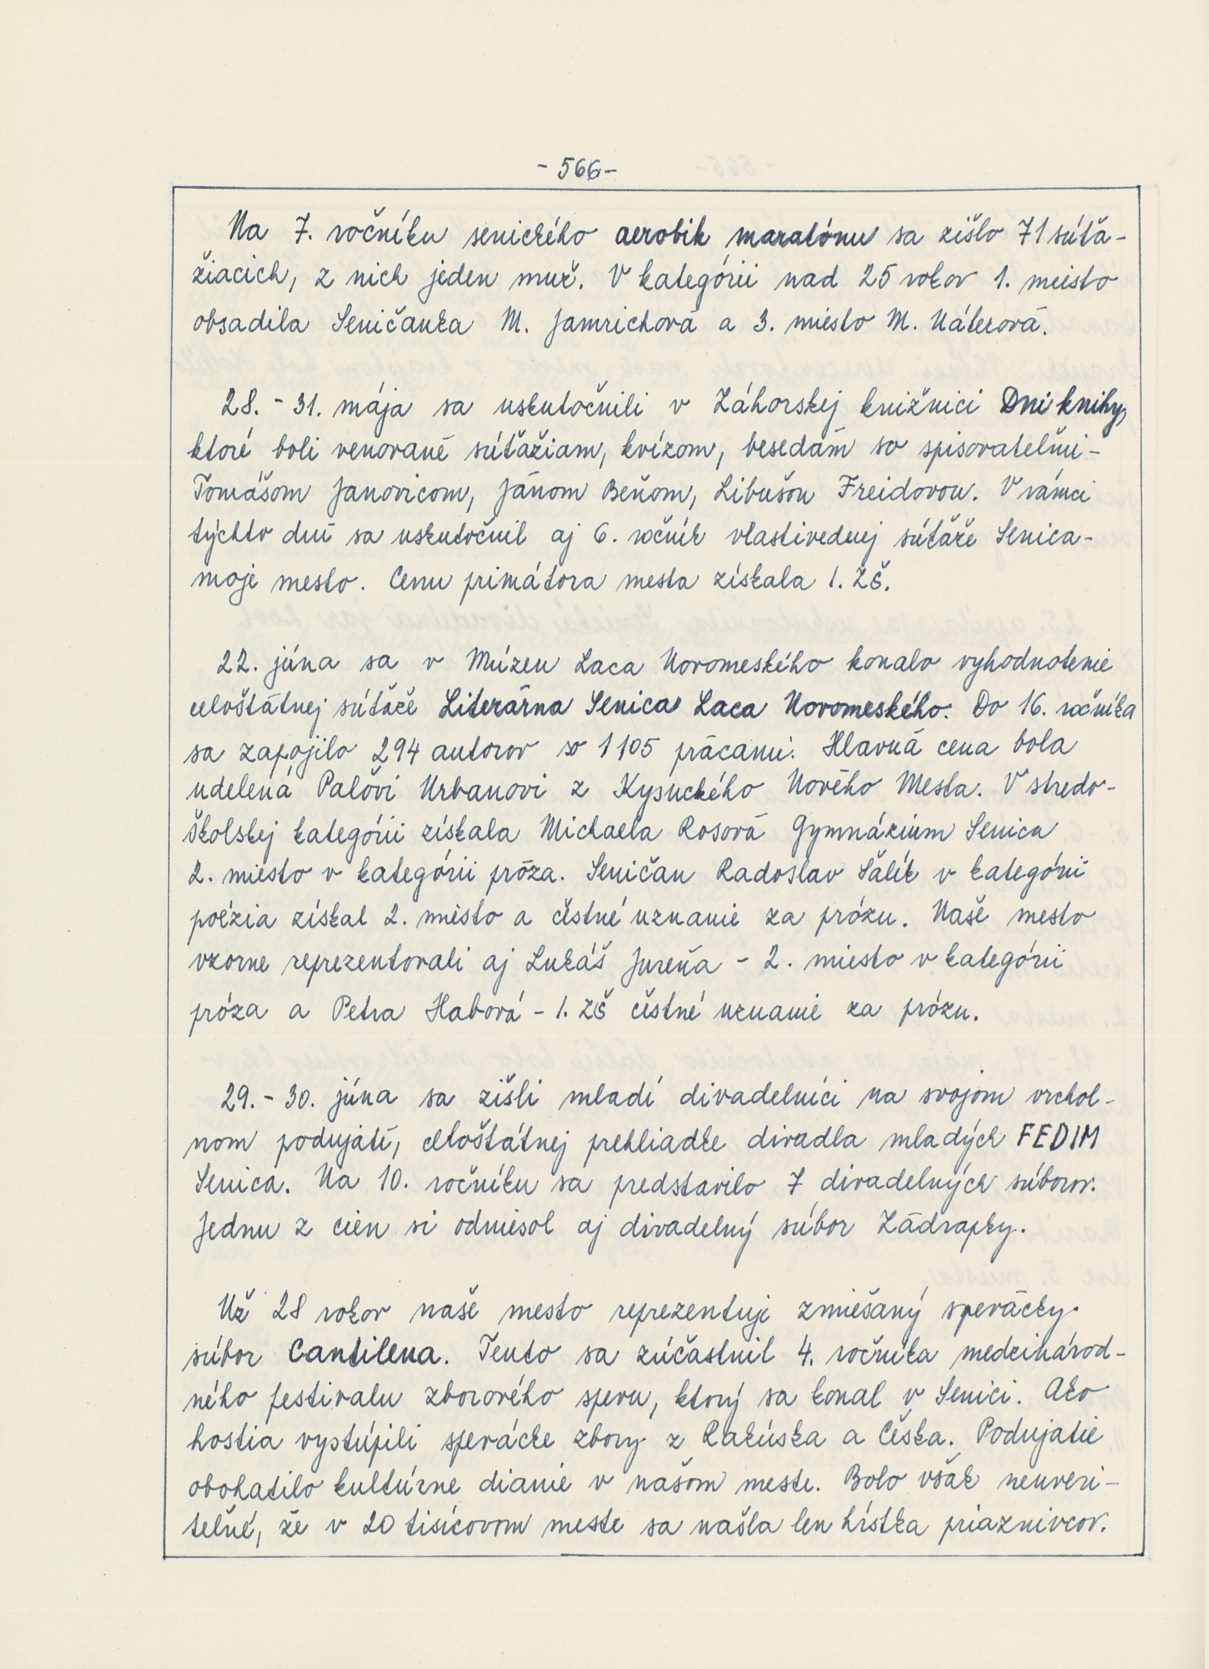 - 566 -
Na 7. ročníku senického aerobik maratónu sa zišlo 71 súťa-
žiacich, z nich jeden muž. V kategórii nad 25 rokov 1. miesto
obsadila Seničanka M. Jamrichová a 3. miesto M. Náterová.
28. - 31. mája sa uskutočnili v Záhorskej knižnici Dni knihy,
ktoré boli venované súťažiam, kvízom, besedám so spisovateľmi -
Tomášom Janovicom, Jánom Beňom, Libušou Freidovou. V rámci
týchto dní sa uskutočnil aj 6. ročník vlastivednej súťaže Senica -
moje mesto. Cenu primátora mesta získala 1. ZŠ.
22. júna sa v Múzeu Laca Novomeského konalo vyhodnotenie
celoštátnej súťaže Literárna Senica Laca Novomeského. Do 16. ročníka
sa zapojilo 294 autorov so 1105 prácami. Hlavná cena bola
udelená Paľovi Urbanovi z Kysuckého Nového Mesta. V stredo-
školskej kategórii získala Michaela Rosová Gymnázium Senica
2. miesto v kategórii próza. Seničan Radoslav Sálik v kategórii
poézia získal 2. miesto a čestné uznanie za prózu. Naše mesto
vzorne reprezentovali aj Lukáš Jureňa - 2. miesto v kategórii
próza a Petra Haborá - 1. ZŠ čestné uznanie za prózu.
29. - 30. júna sa zišli mladí divadelníci na svojom vrchol-
nom podujatí, celoštátnej prehliadke divadla mladých FEDIM
Senica. Na 10. ročníku sa predstavilo 7 divadelných súborov.
Jednu z cien si odniesol aj divadelný súbor Zádrapky.
Už 28 rokov naše mesto reprezentuje zmiešaný spevácky
súbor Cantilena. Tento sa zúčastnil 4. ročníka medzinárod-
ného festivalu zborového spevu, ktorý sa konal v Senici. Ako
hostia vystúpili spevácke zbory z Rakúska a Česka. Podujatie
obohatilo kultúrne dianie v našom meste. Bolo však neuveri-
teľné, že v 20 tisícovom meste sa našla len hŕstka priaznivcov.